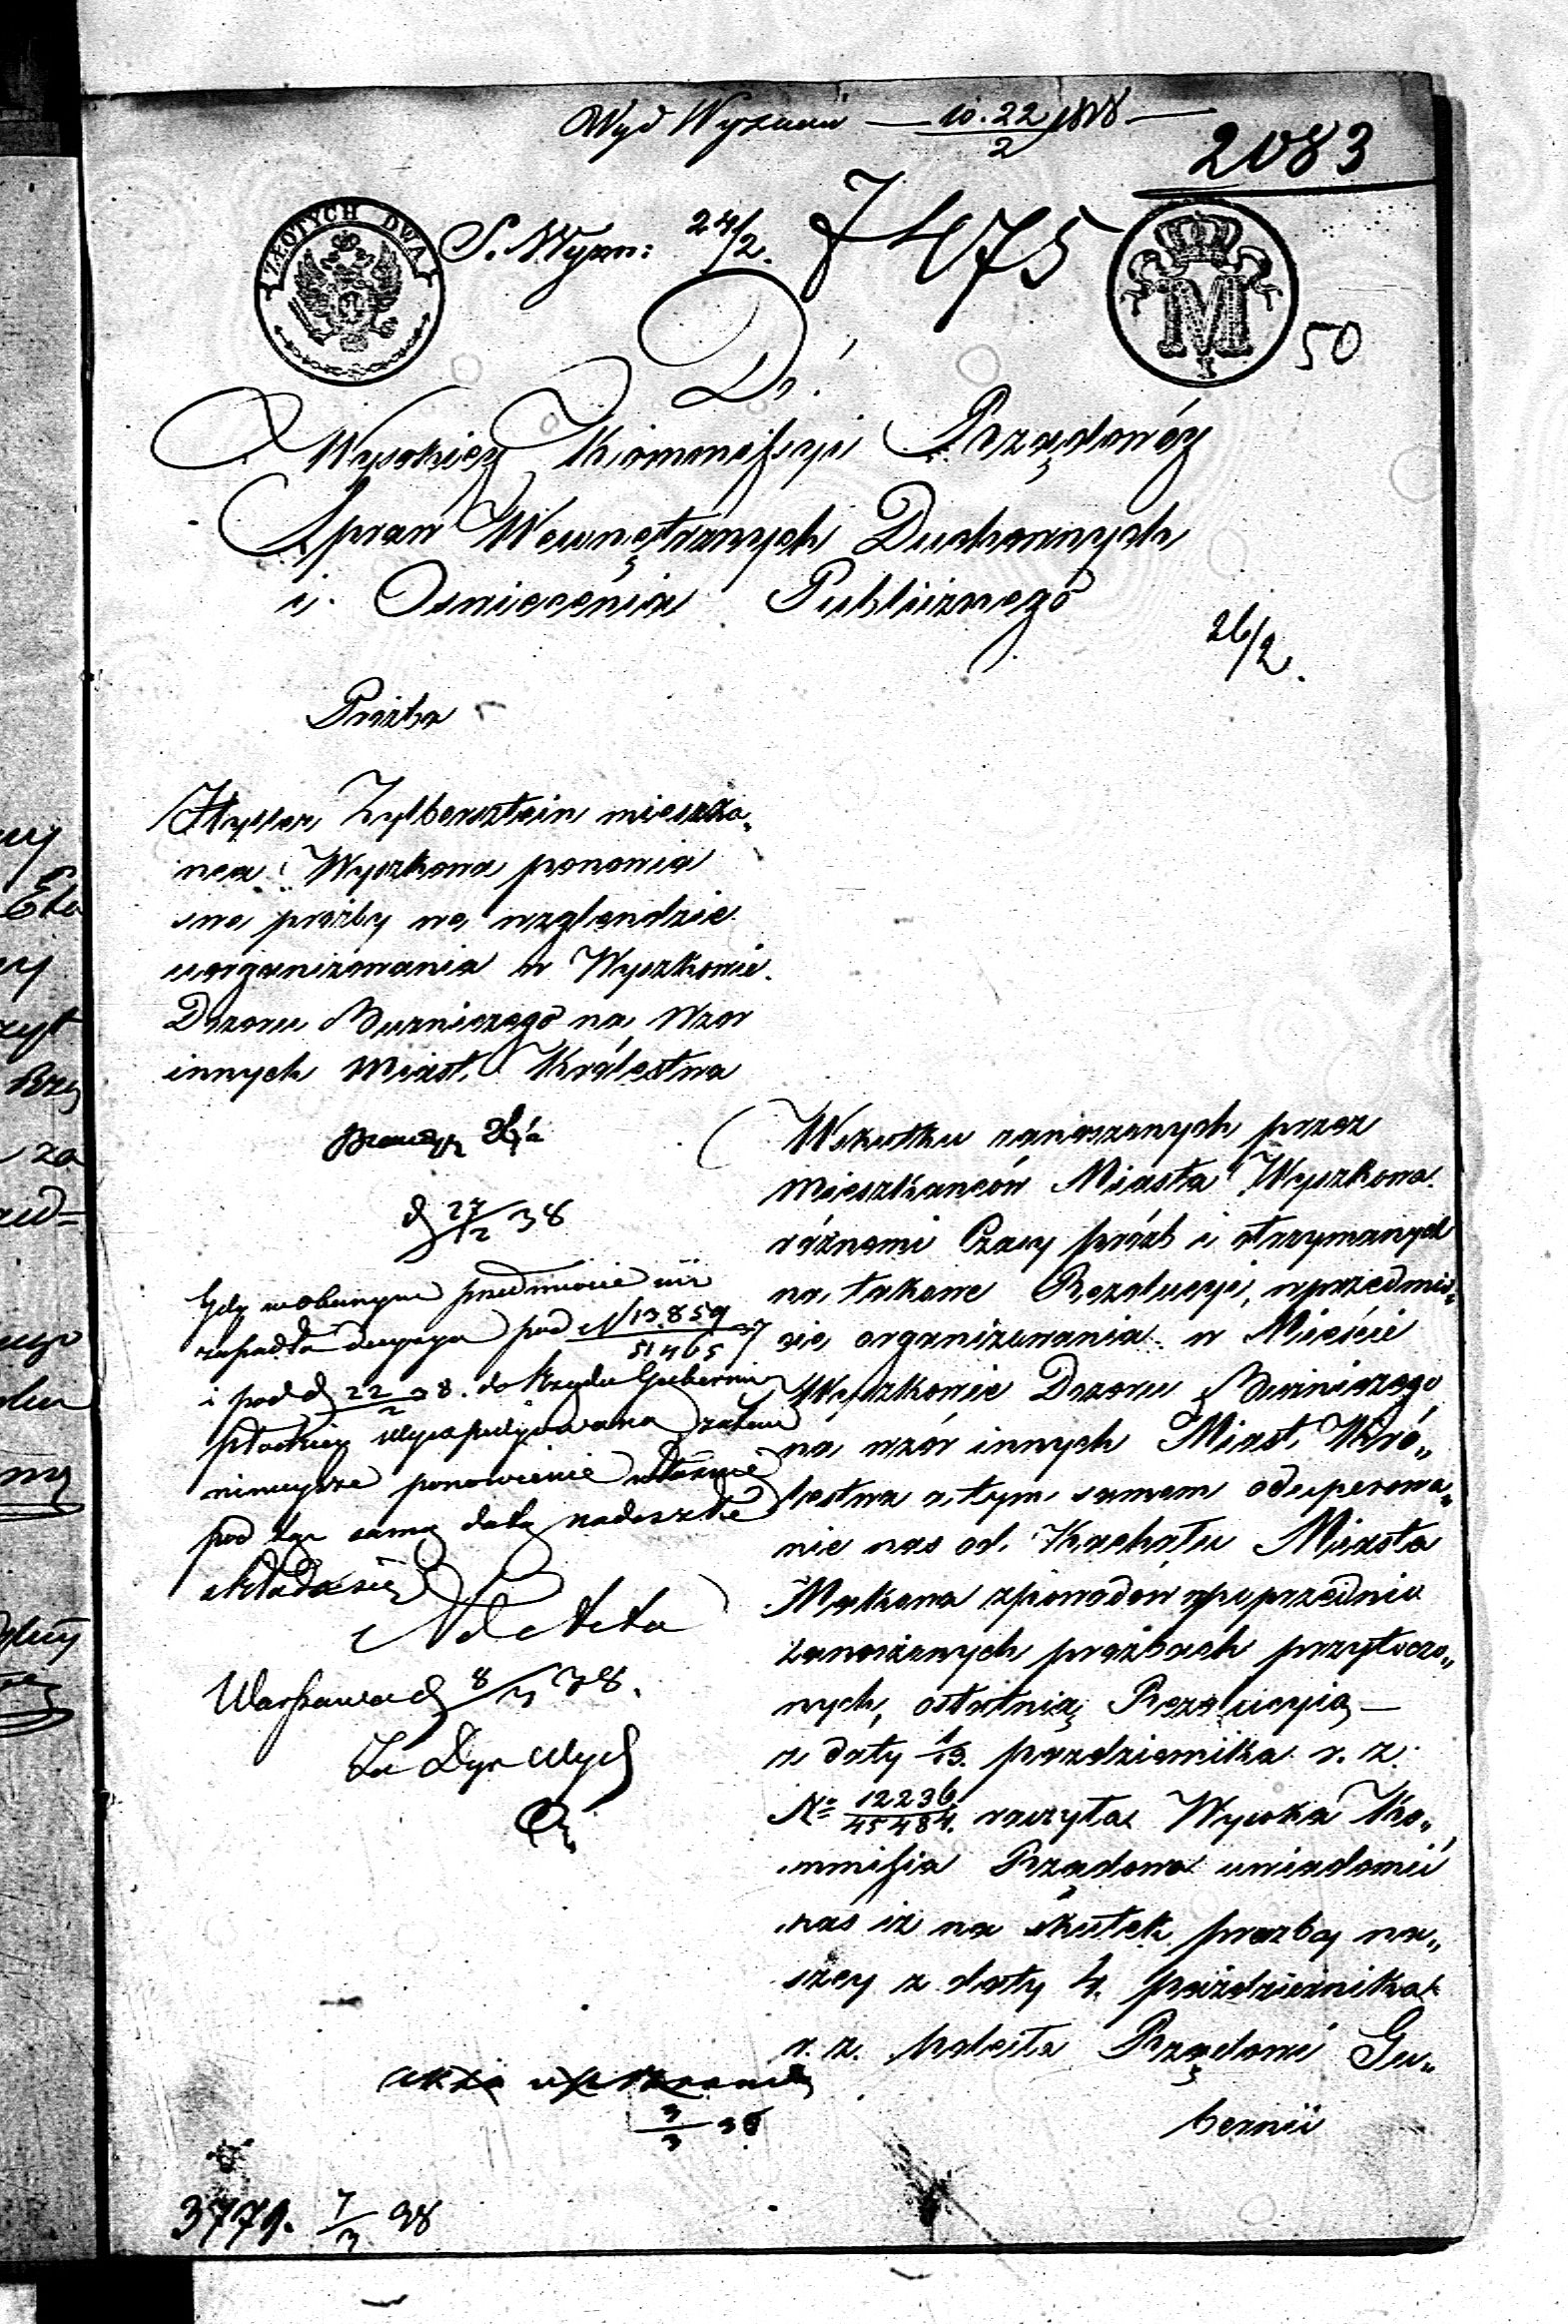 Wyd Wyznań — 10.22/2 1838 —
2083
ZŁOTYCH DWA
S. Wyzn: 24/2.
7475
M
I
50
Do
Wysokiey Kommissyi Rządowéy
Spraw Wewnętrznych Duchownych
i Oswiecenia Publicznego
26/2.
Prozba
Zylbersztein mieszka„
niec Wyszkowa ponawia
swe prozby we wzglendzie
uorganizowania w Wyszkowie
Dozoru Bużniczego na wzor
innych Miast Królestwa
d 27/2 38
Gdy w obecnym przedmiocie już
zapadła decyzya pod N 13859/51465 37
i pod d 22/2 38. do Rządu Gubernii
Płockiey wyexpedyowana zatem
ninieysze ponowienie właśnie
pod tąż samą datą nadeszłe
składa się
Warszawa d 8/3 38.
Za Dyr Wydz
Wskutku zanoszonych przez
Mieszkanców Miasta Wyszkowa
różnemi Czasy prózb i otrzymanych
na takowe Rezolucyi, w przedmio„
cie organizowania w Mieście
Wyszkowie Dozoru Bużniczego
na wzór innych Miast Kró„
lestwa a tym samem odseperowa„
nie nas od Kachału Miasta
Makowa z powodów w poprzednio
zanoszonych prozbach przytoczo„
nych, ostatnią Rezolucyią —
z daty 1/13. pazdziernika r. z.
No 12236/45484. raczyła Wysoka Ko„
mmissia Rządowa uwiadomić
nas iż na skutek prozby na„
szey z daty 4. pażdziernika
r. z. poleciła Rządowi Gu„
bernii
3/3 38
3779. 7/3 38